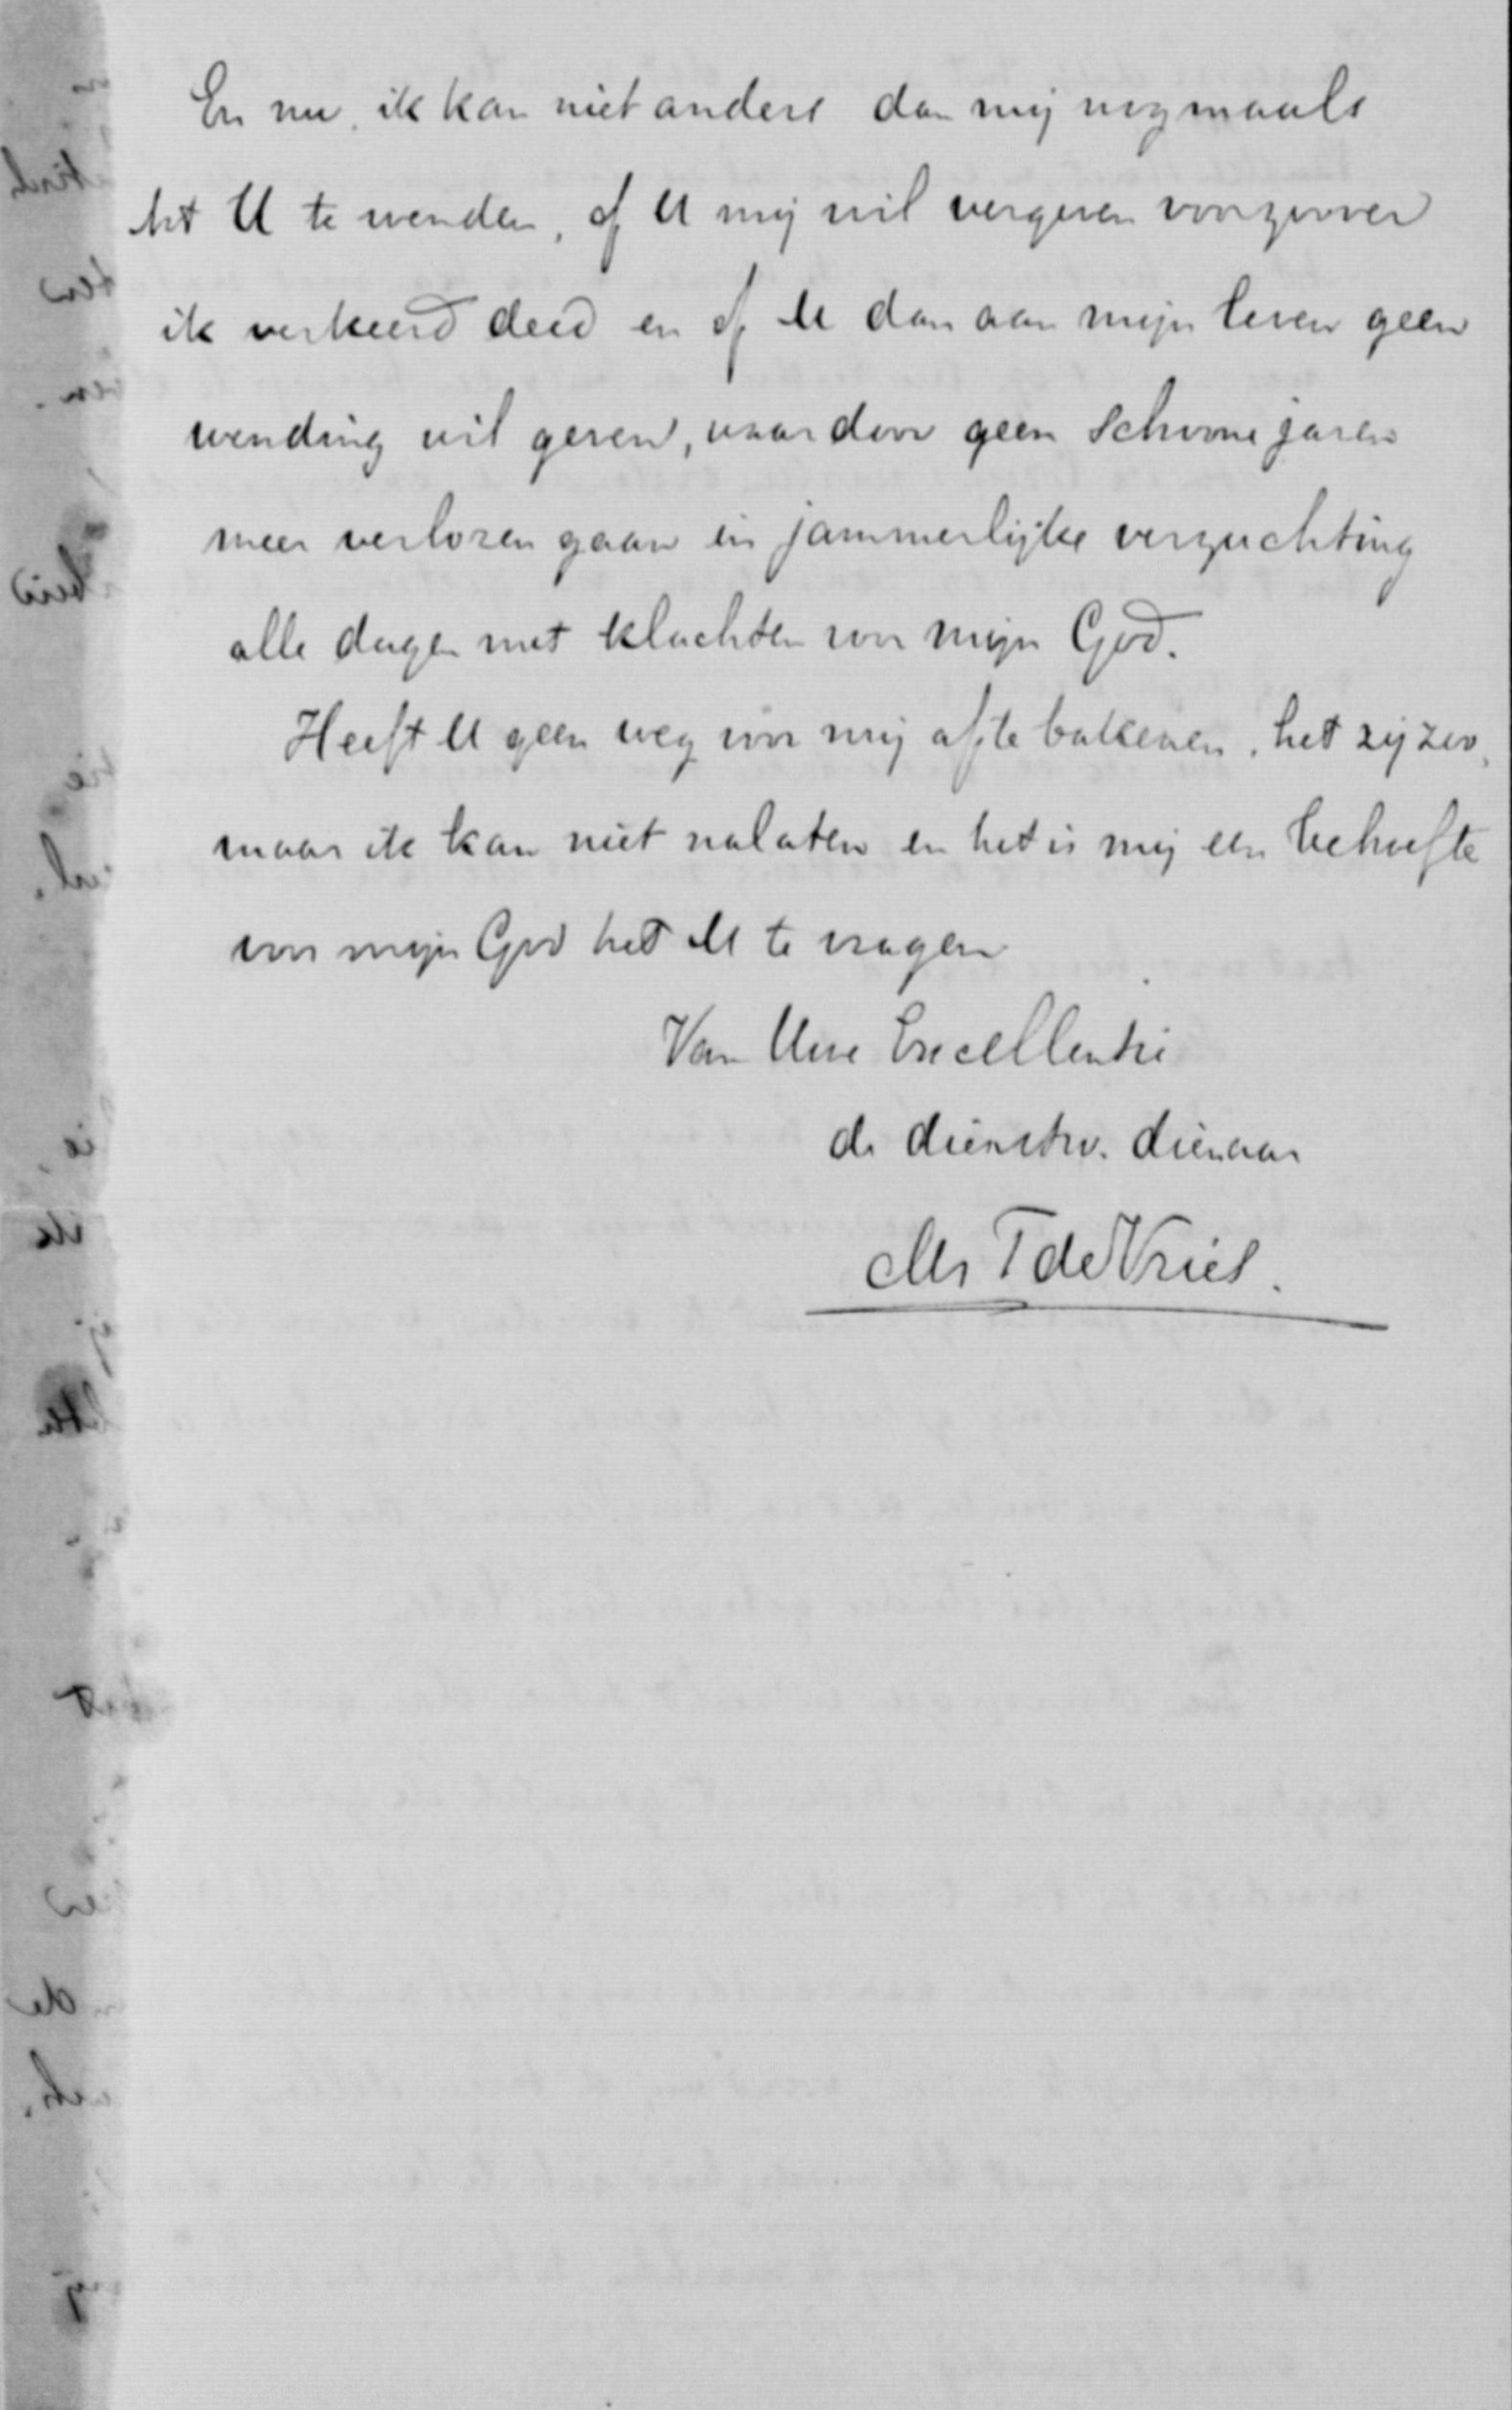 En nu, ik kan niet anders dan mij nogmaals
tot U te wenden, of U mij wil vergeven voorzoover
ik verkeerd deed en of U dan aan mijn leven geen
wending wil geven, waardoor geen schoone jaren
meer verloren gaan in jammerlijke verzuchting
alle dagen met klachten voor mijn God.
Heeft U geen weg voor mij af te bakenen, het zij zoo,
maar ik kan niet nalaten en het is mij een behoefte
voor mijn God het U te vragen
Van Uwe Excellentie
de dienstw. dienaar
Mr T de Vries.